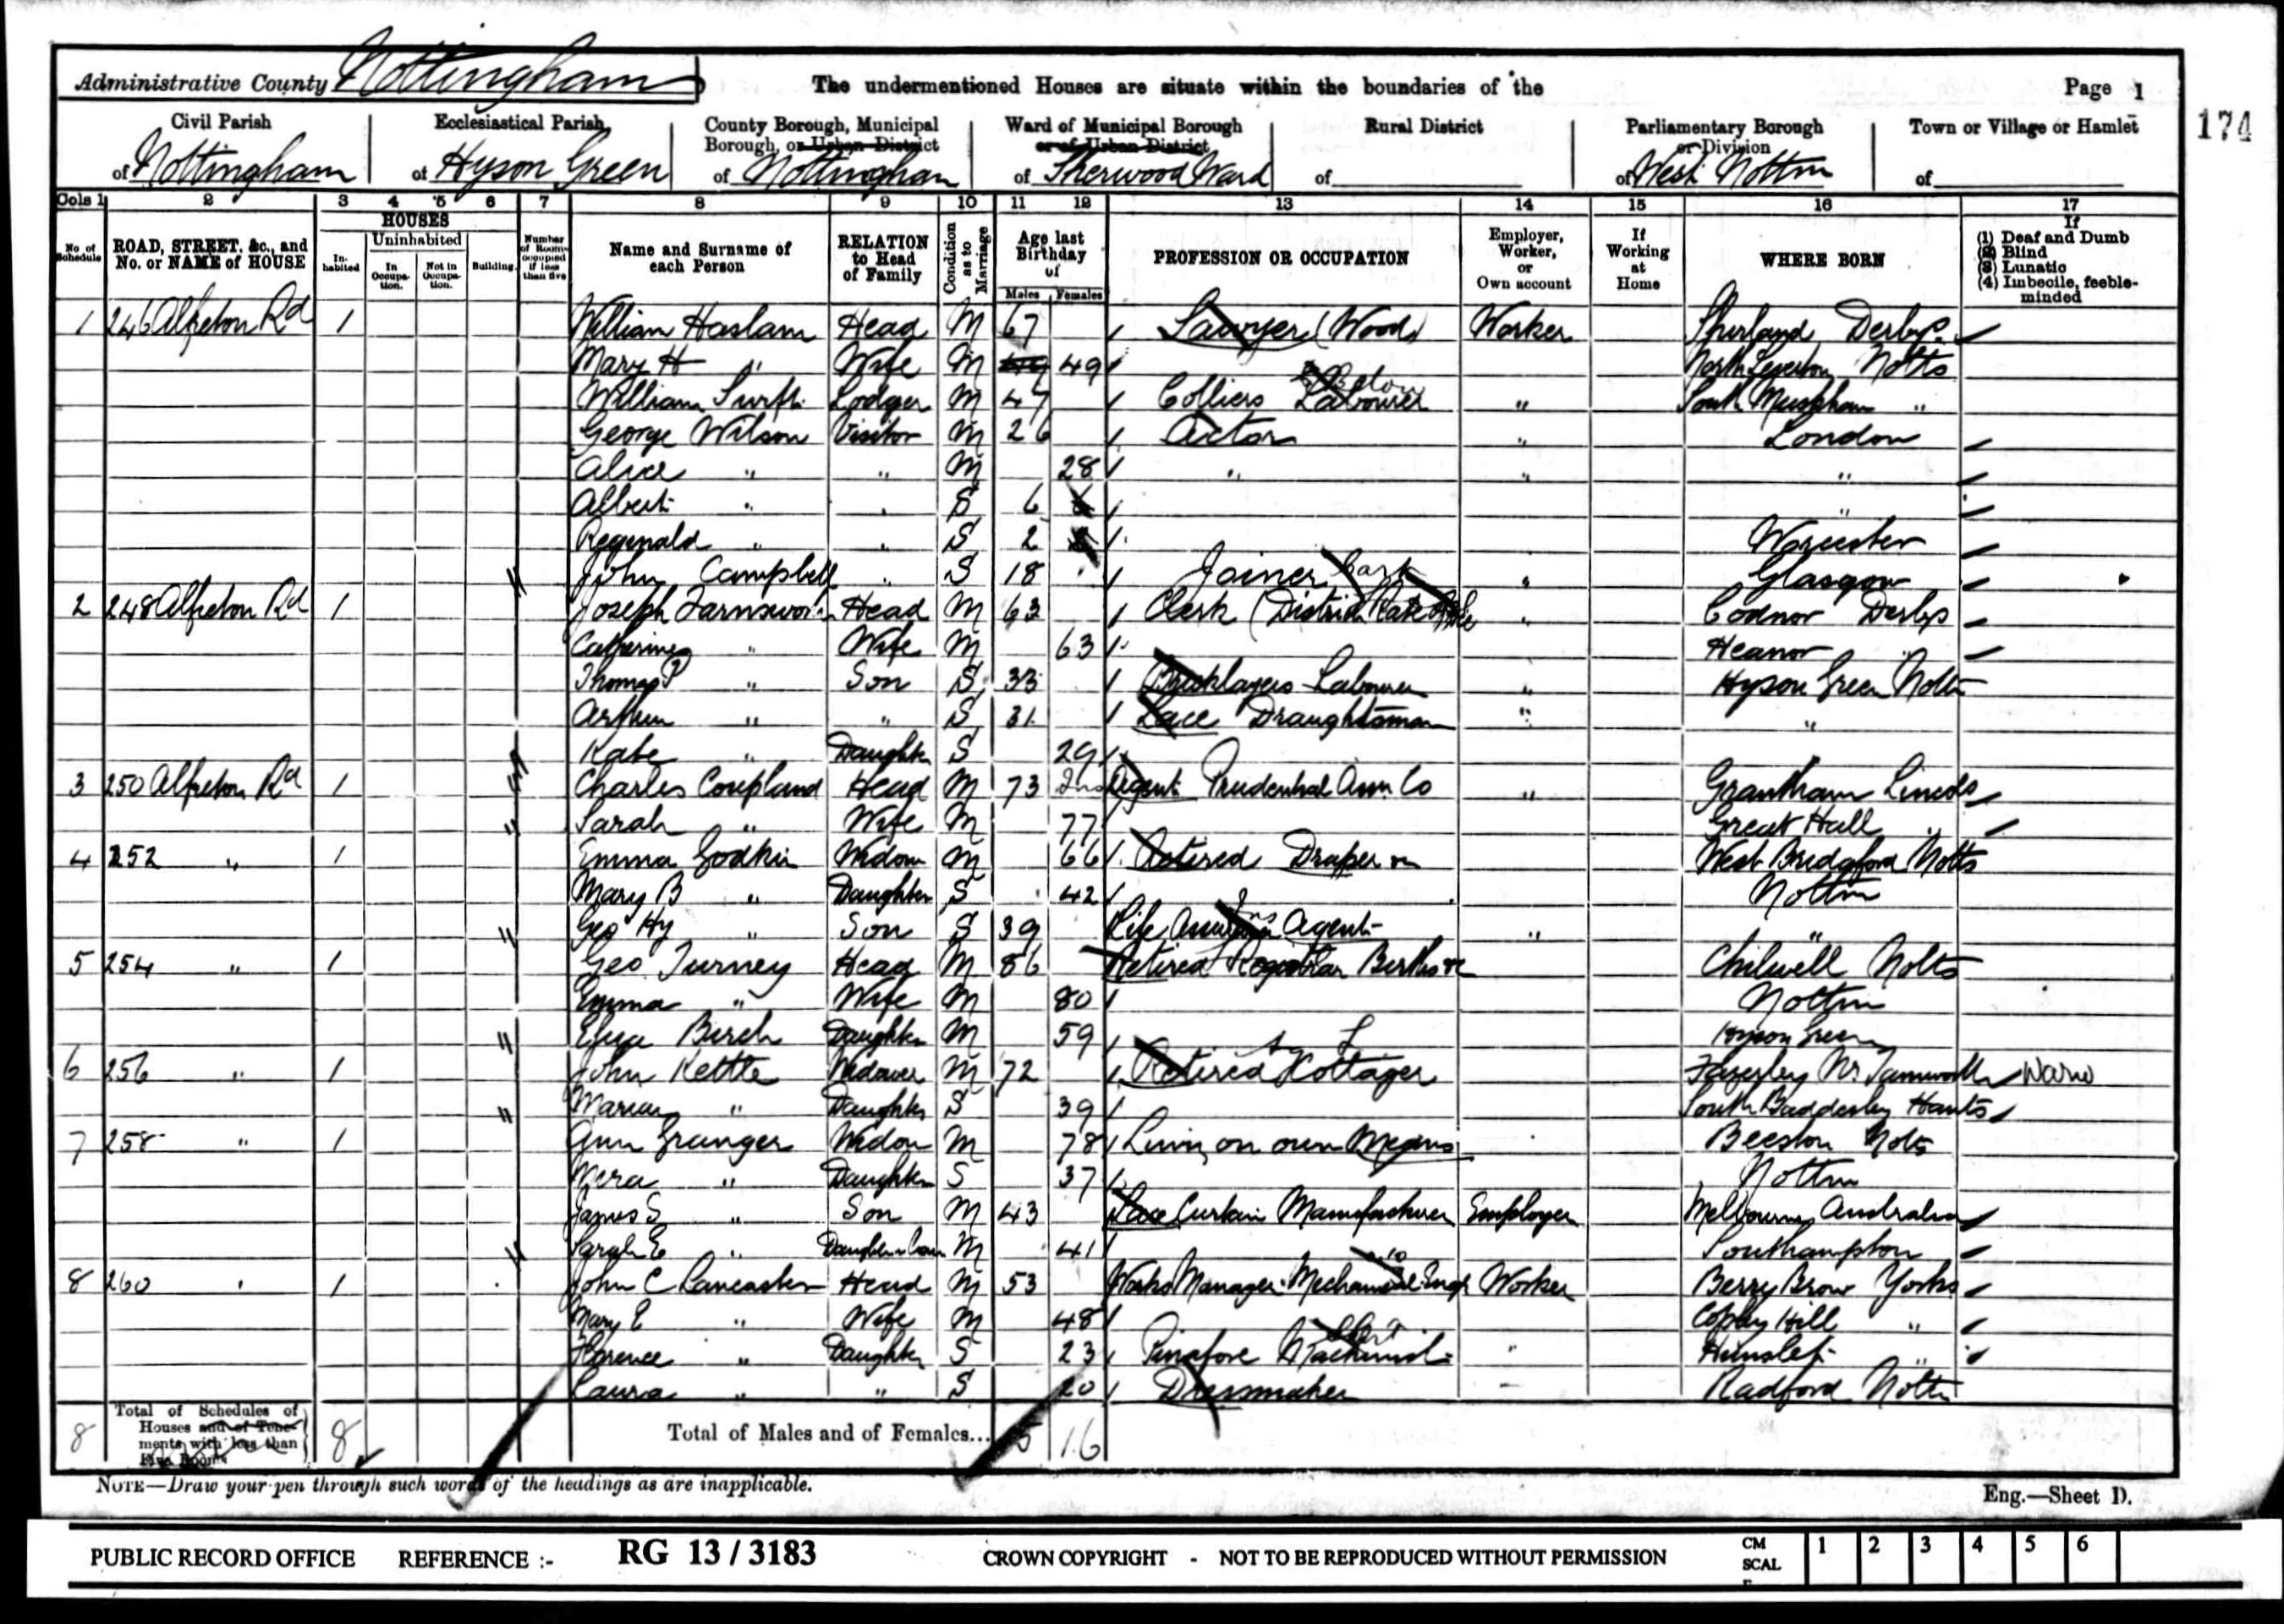 Administrative County Nottingham The undermentioned Houses are situate within the boundaries of the Page 1
174
Civil Parish Ecclesiastical Parish County Borough, Municipal Borough, or Urban District Ward of Municipal Borough or of Urban District Rural District Parliamentary Borough or Division Town or Village or Hamlet
of Nottingham of Hyson Green of Nottingham of Sherwood Ward of of West Nottm of
Cols 1 2 3 4 5 6 7 8 9 10 11 12 13 14 15 16 17
No of Schedule ROAD, STREET, &c., and No. or NAME of HOUSE HOUSES Inhabited Uninhabited In Occupation. Not in Occupation. Building. Number of Rooms occupied if less than five Name and Surname of each Person RELATION to Head of Family Condition as to Marriage Age last Birthday of Males Females PROFESSION OR OCCUPATION Employer, Worker, or Own account If Working at Home WHERE BORN If (1) Deaf and Dumb (2) Blind (3) Lunatic (4) Imbecile, feeble-minded
1 246 Alfreton Rd 1 William Haslam Head M 67 Sawyer (Wood) Worker Shirland Derbys
Mary H " Wife M 49 North Leverton Notts
William Swift Lodger M 47 Colliers Labourer Below " South Muskham "
George Wilson Visitor M 26 Actor " London
Alice " " M 28 " " "
Albert " " S 6 "
Reginald " " S 2 Worcester
John Campbell " S 18 Joiner " Glasgow
2 248 Alfreton Rd 1 Joseph Farnsworth Head M 63 Clerk (District Rate Office " Codnor Derbys
Catherine " Wife M 63 Heanor "
Thomas P " Son S 33 Bricklayers Labourer " Hyson Green Notts
Arthur " " S 31 Lace Draughtsman " "
Kate " Daughter S 29
3 250 Alfreton Rd 1 Charles Coupland Head M 73 Ins Agent Prudential Assn Co " Grantham Lincs
Sarah " Wife M 77 Great Hall "
4 252 " 1 Emma Godkin Widow M 66 Retired Draper West Bridgford Notts
Mary B " Daughter S 42 Nottm
Geo Hy " Son S 39 Life Agent Ins " "
5 254 " 1 Geo Turney Head M 86 Retired Registrar Births &c Chilwell Notts
Emma " Wife M 80 Nottm
Eliza Birch Daughter M 59 Hyson Green
6 256 " 1 John Kettle Widower M 72 Retired Cottager Fazerley Nr Tamworth Warw
" Daughter S 39 South Baddesley Hants
7 258 " 1 Ann Granger Widow M 78 Living on own Means Beeston Notts
" Daughter S 37 Nottm
James S " Son M 43 Lace Curtain Manufacturer Employer Melbourne Australia
Sarah E " Daughter in law M 41 Southampton
8 260 " 1 John C Lancaster Head M 53 Works Manager Mechanical Engr Worker Berry Brow Yorks
Mary E " Wife M 48 Copley Hill "
Florence " Daughter S 23 Pinafore Machinist " Hunslet "
Laura " " S 20 Dressmaker Radford Nottm
8 Total of Schedules of Houses and of Tenements with less than Five Rooms 8 Total of Males and of Females... 15 16
NOTE—Draw your pen through such words of the headings as are inapplicable.
Eng.—Sheet D.
PUBLIC RECORD OFFICE REFERENCE :- RG 13 / 3183 CROWN COPYRIGHT - NOT TO BE REPRODUCED WITHOUT PERMISSION CM SCALE 1 2 3 4 5 6